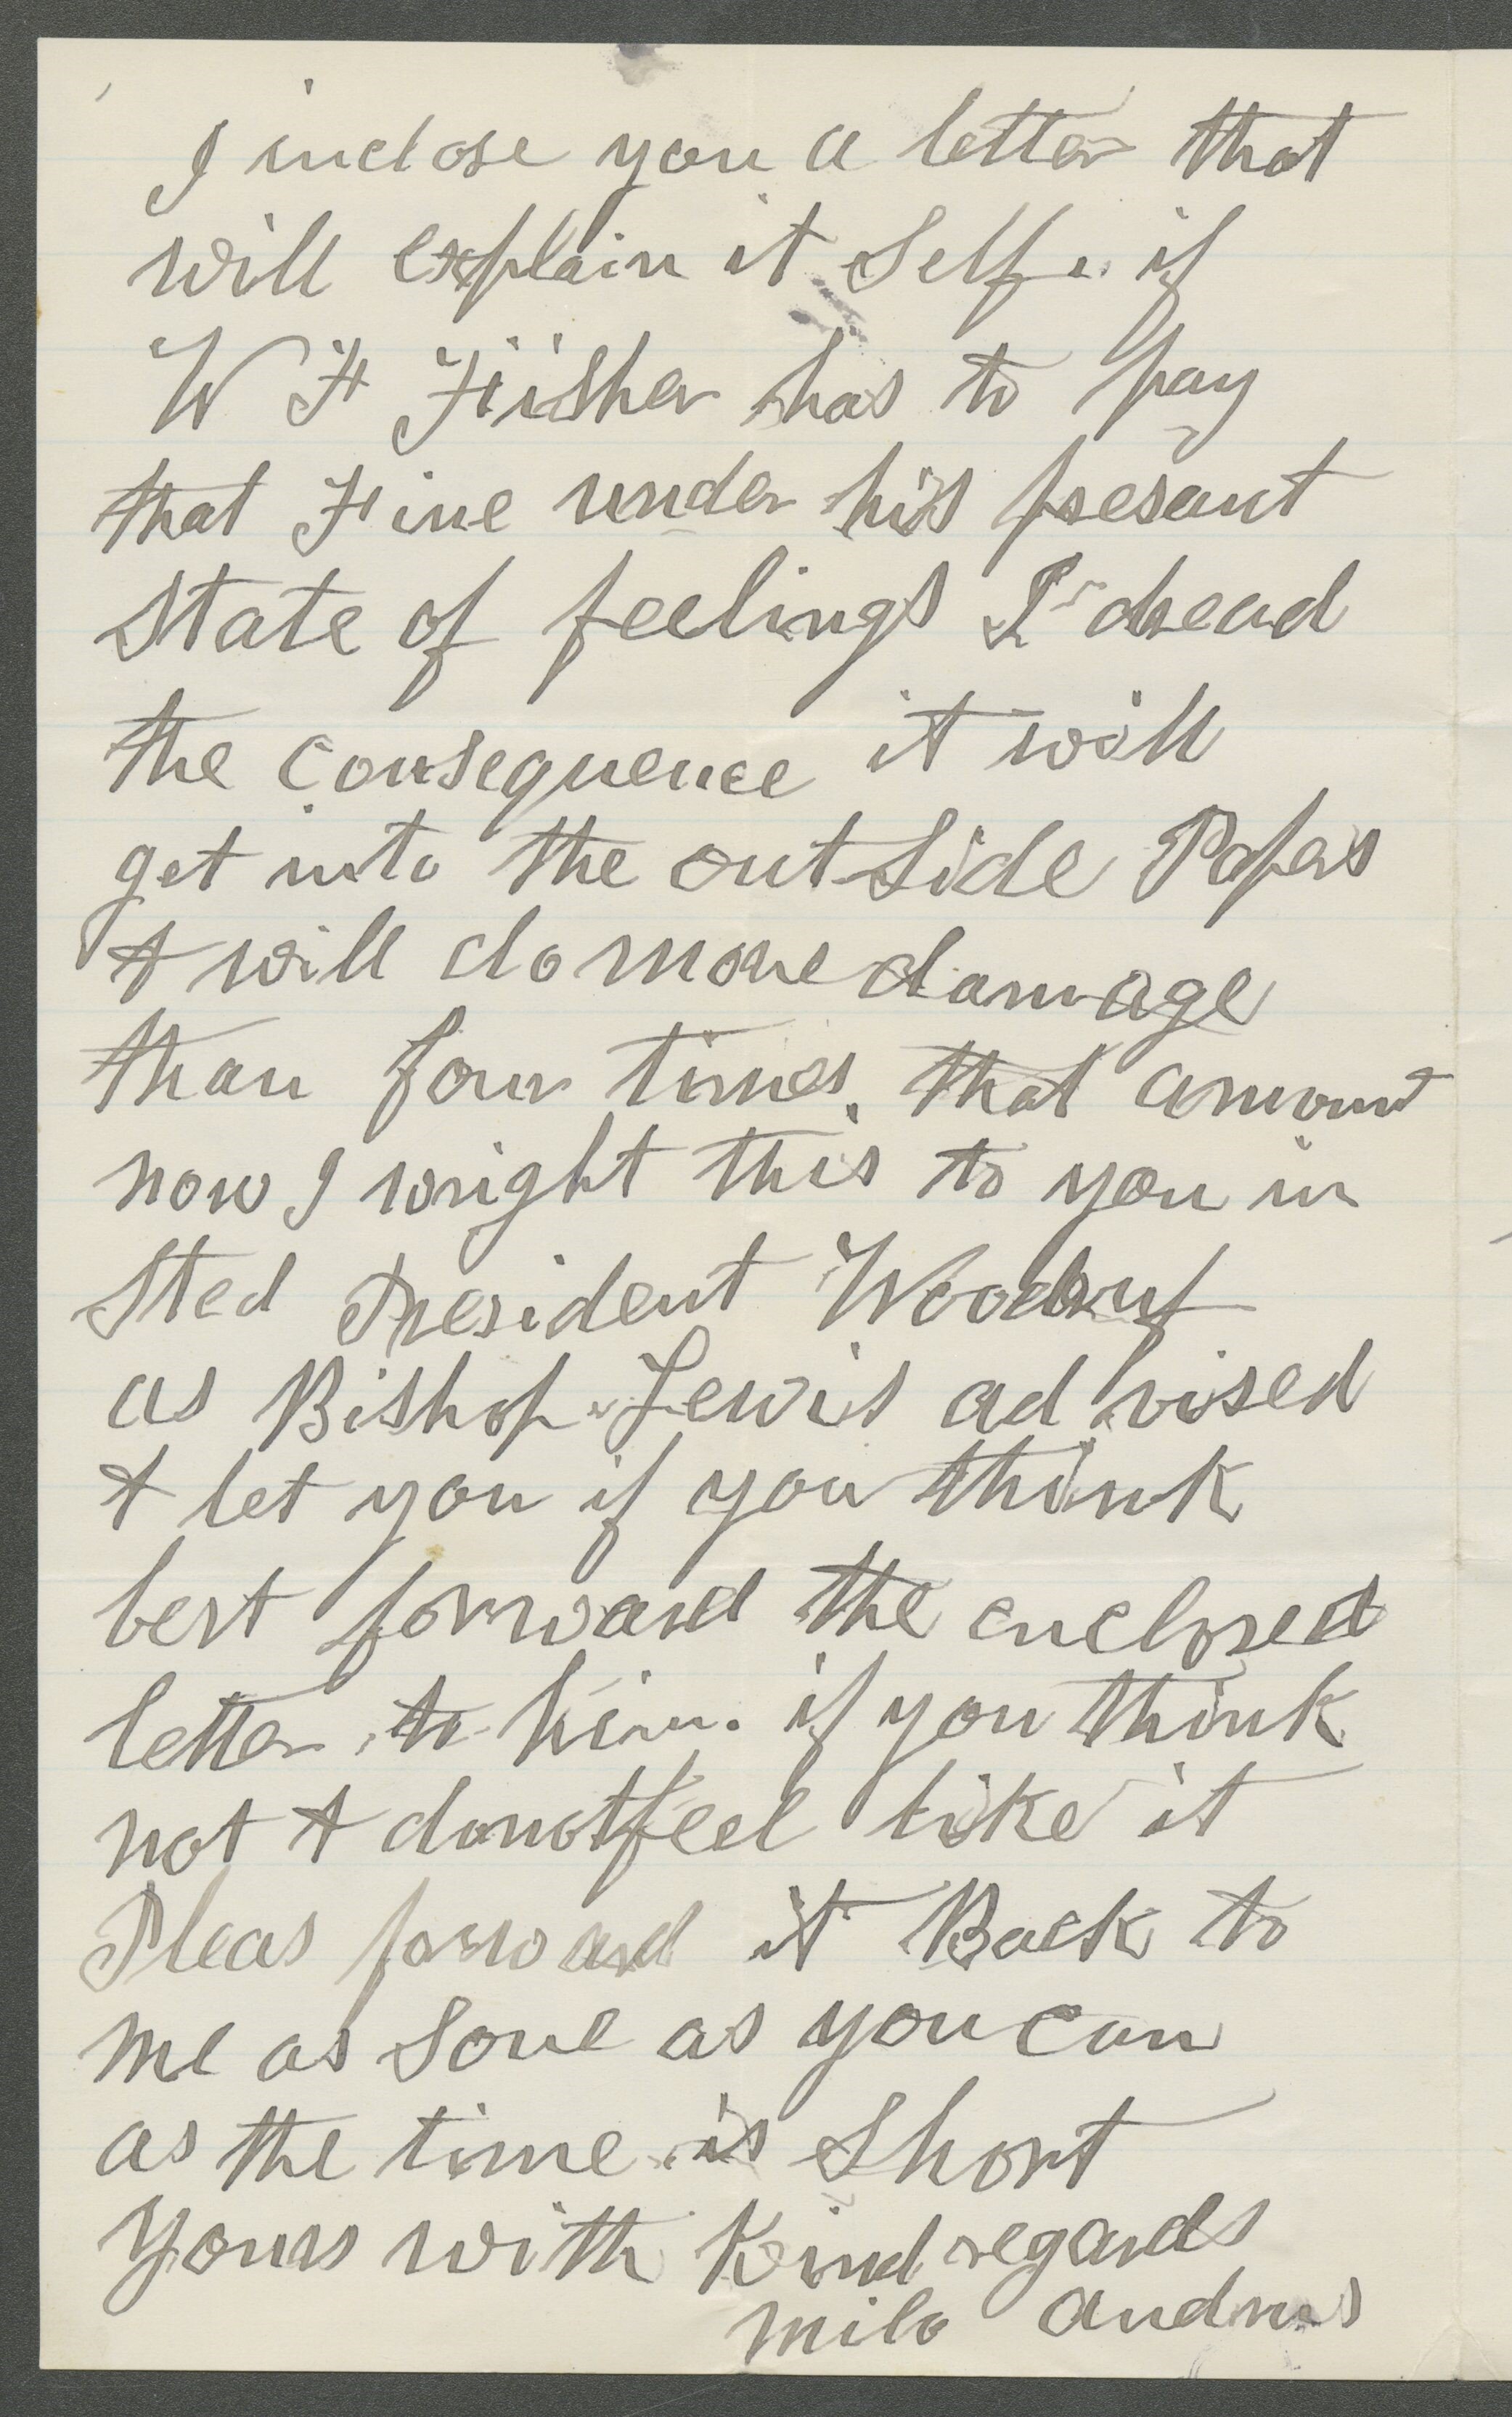 I inclose you a letter that
will explain it Self. if
W F Fisher has to pay
that Fine under his presant
State of feelings I dread
the Consequence it will
get into the out Side Papers
& will do more damage
than four times that amount
now I wright this to you in
Sted President Woodruf
as Bishop Lewis ad vised
& let you if you think
best forward the enclosed
letter to him. if you think
not & do not feel like it
Pleas forward it Back to
me as Sone as you can
as the time is Short
Yours with Kind regards
Milo Andrus